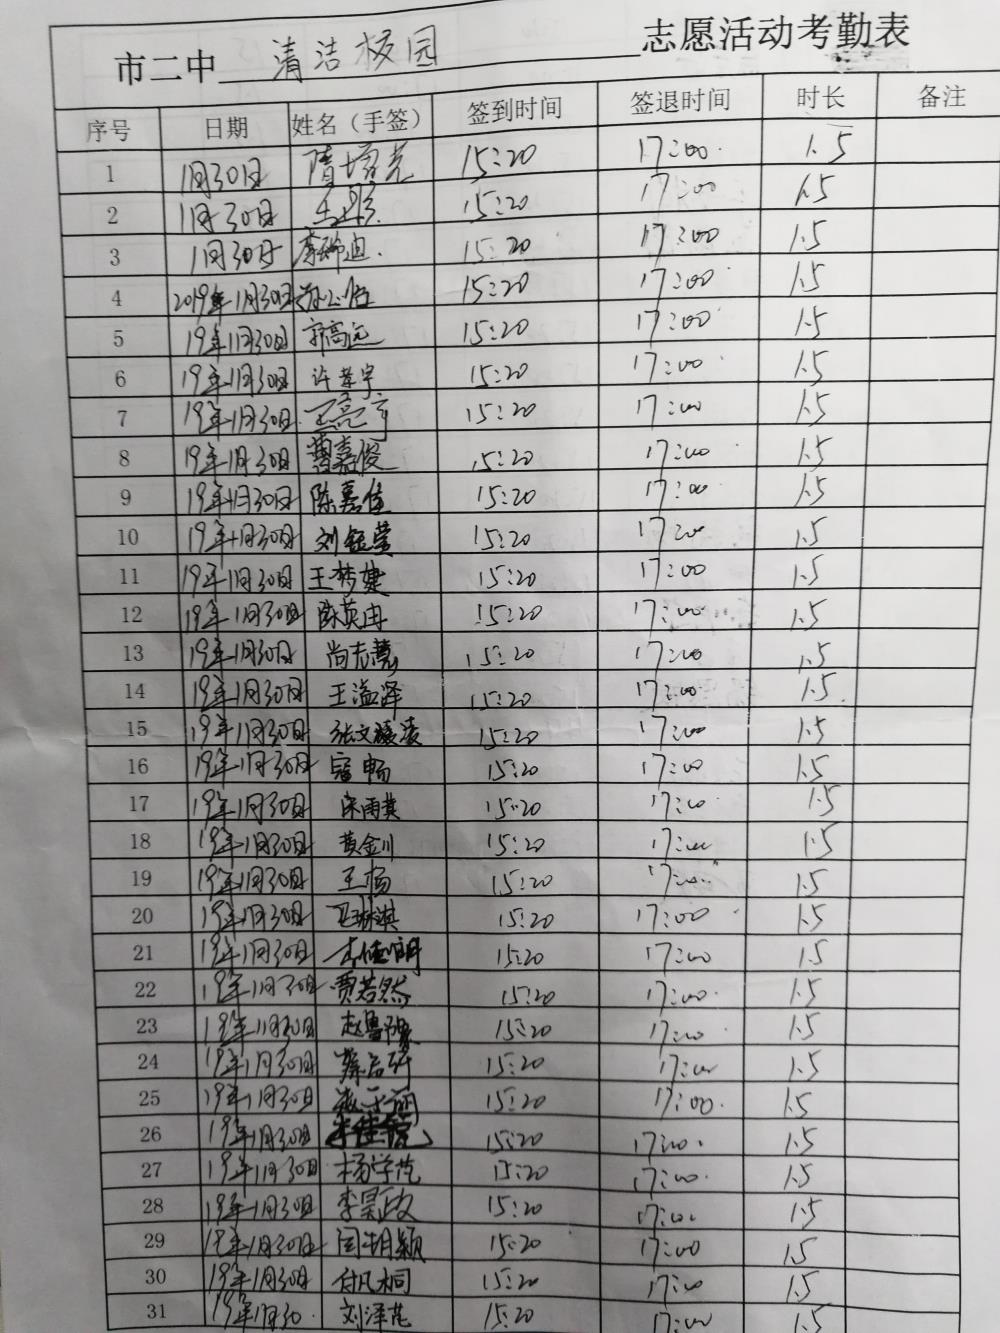 市二中 清洁校园 志愿活动考勤表
序号 日期 姓名（手签） 签到时间 签退时间 时长 备注
1 1月30日 隋 15:20 17:00 1.5
2 1月30日 15:20 17:00 1.5
3 1月30日 李 迪 15:20 17:00 1.5
4 2019年1月30日 孙 怡 15:20 17:00 1.5
5 19年1月30日 郭高远 15:20 17:00 1.5
6 19年1月30日 许 宇 15:20 17:00 1.5
7 19年1月30日 王亮 15:20 17:00 1.5
8 19年1月30日 曹嘉俊 15:20 17:00 1.5
9 19年1月30日 陈嘉佳 15:20 17:00 1.5
10 19年1月30日 刘钰莹 15:20 17:00 1.5
11 19年1月30日 王梦婕 15:20 17:00 1.5
12 19年1月30日 陈英冉 15:20 17:00 1.5
13 19年1月30日 尚志慧 15:20 17:00 1.5
14 19年1月30日 王溢泽 15:20 17:00 1.5
15 19年1月30日 张文 凌 15:20 17:00 1.5
16 19年1月30日 寇畅 15:20 17:00 1.5
17 19年1月30日 宋雨其 15:20 17:00 1.5
18 19年1月30日 黄金川 15:20 17:00 1.5
19 19年1月30日 王杨 15:20 17:00 1.5
20 19年1月30日 琳淇 15:20 17:00 1.5
21 19年1月30日 15:20 17:00 1.5
22 19年1月30日 贾若然 15:20 17:00 1.5
23 19年1月30日 赵鲁 15:20 17:00 1.5
24 19年1月30日 15:20 17:00 1.5
25 19年1月30日 15:20 17:00 1.5
26 19年1月30日 15:20 17:00 1.5
27 19年1月30日 杨学范 15:20 17:00 1.5
28 19年1月30日 李昊政 15:20 17:00 1.5
29 19年1月30日 闫明颖 15:20 17:00 1.5
30 19年1月30日 付凡桐 15:20 17:00 1.5
31 19年1月30. 刘泽芃 15:20 17:00 1.5